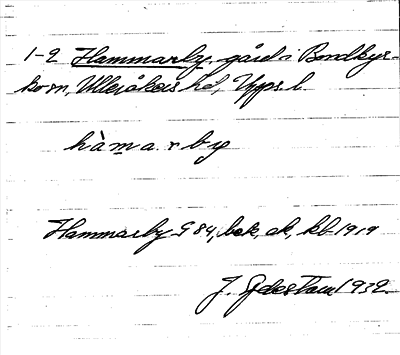 1-2 Hammarby, gård i Bondkyr-
ko sn, Ulleråkers hd, Upps. l.
hàmarby
Hammarby G 84, bok, ak, kb 1919
J. Ejdestam 1932.